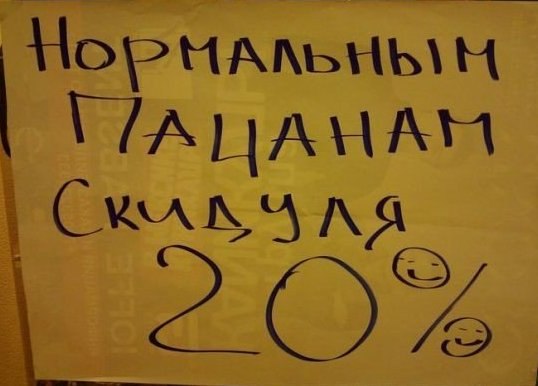 Нормальным
пацанам
скидуля
20%